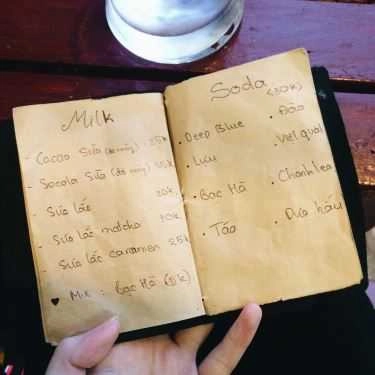 Milk
- Cacao Sữa (đá nóng) : 25k
- Socola Sữa (đá nóng) 25k
- Sữa lắc 20k
- Sữa lắc matcha 30k
- Sữa lắc caramen 25k
♥ Mix : Bạc Hà (5k)
Soda
(30k)
• Deep Blue
• Lựu
• Bạc Hà
• Táo
• Đào
• Việt quất
• Chanh leo
• Dưa hấu